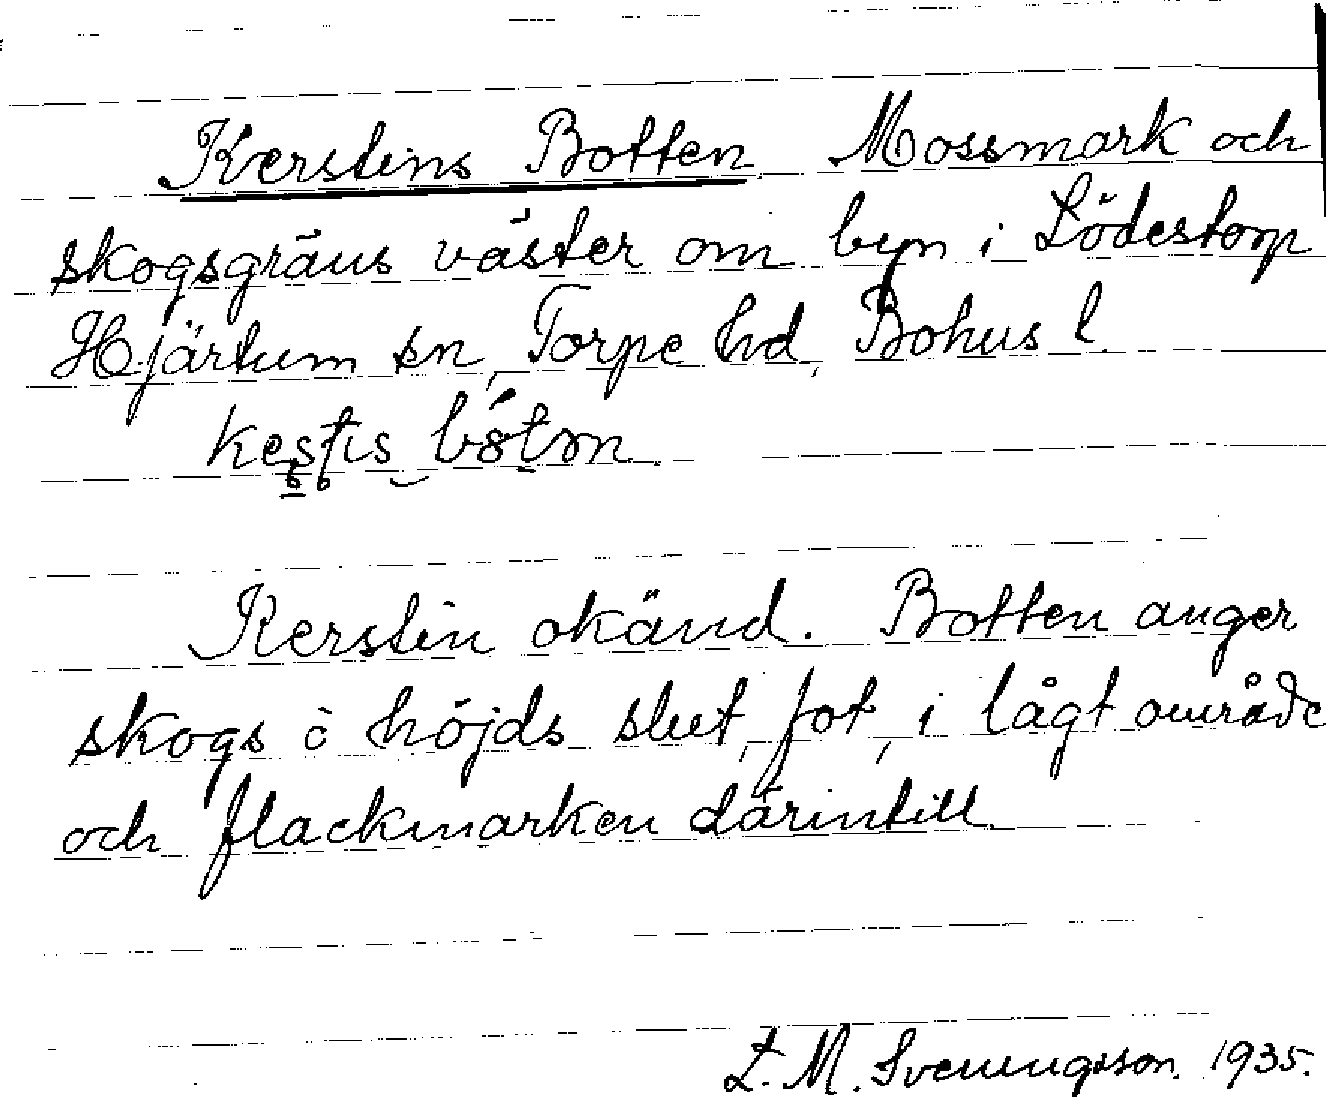 Kerstins Botten Mossmark och
skogsgräns väster om byn i Lödestorp
Hjärtum sn, Torpe hd, Bohus l.
Kerstin okänd. Botten anger
skogs o höjds slut, fot, i lågt område
och flackmarken därintill.
M. Svenungsson. 1935.